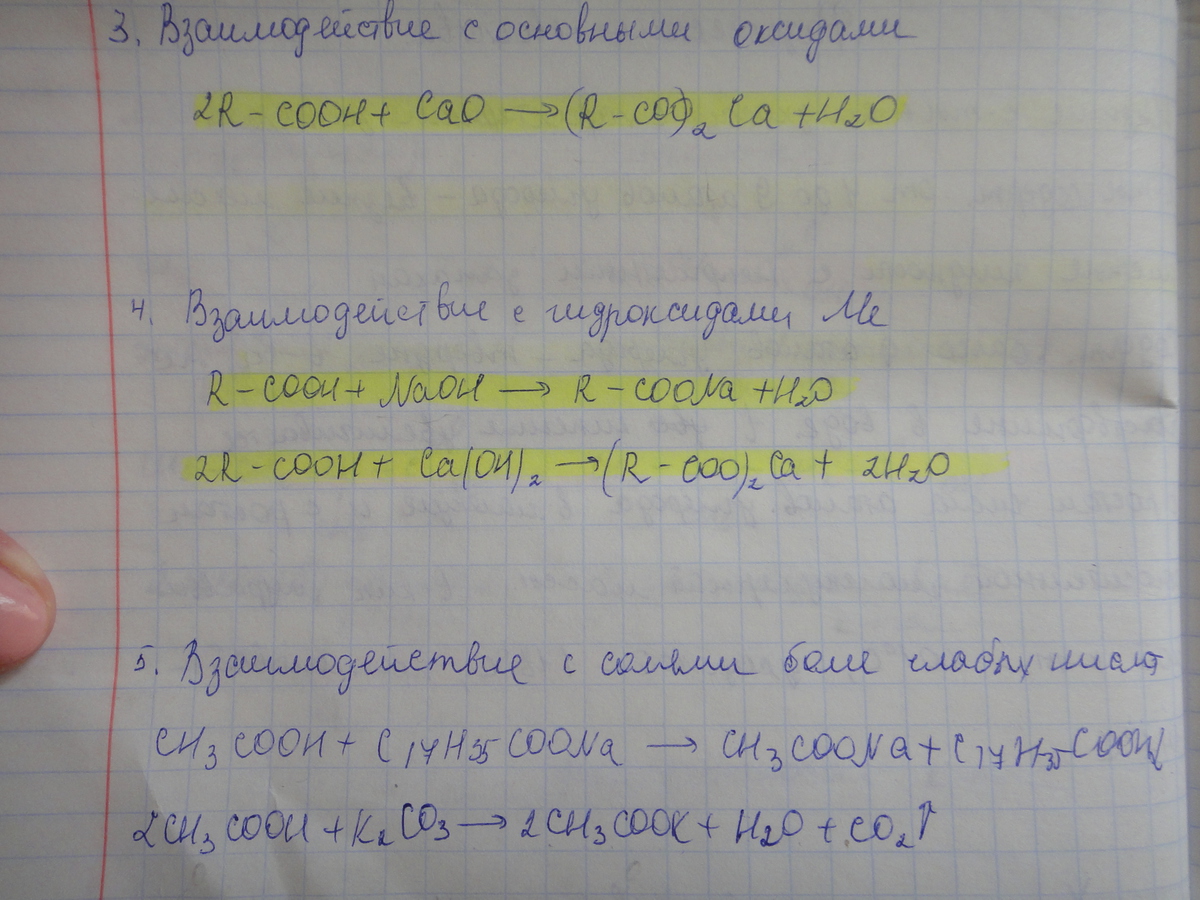 3. Взаимодействие с основными оксидами
2R-COOH + CaO → (R-COO)₂ Ca + H₂O
4. Взаимодействие с гидроксидами Me
R-COOH + NaOH → R-COONa + H₂O
2R-COOH + Ca(OH)₂ → (R-COO)₂Ca + 2H₂O
5. Взаимодействие с солями боле слабых кислот
CH₃COOH + C₁₇H₃₅COONa → CH₃COONa + C₁₇H₃₅COOH↓
2CH₃COOH + K₂CO₃ → 2CH₃COOK + H₂O + CO₂↑